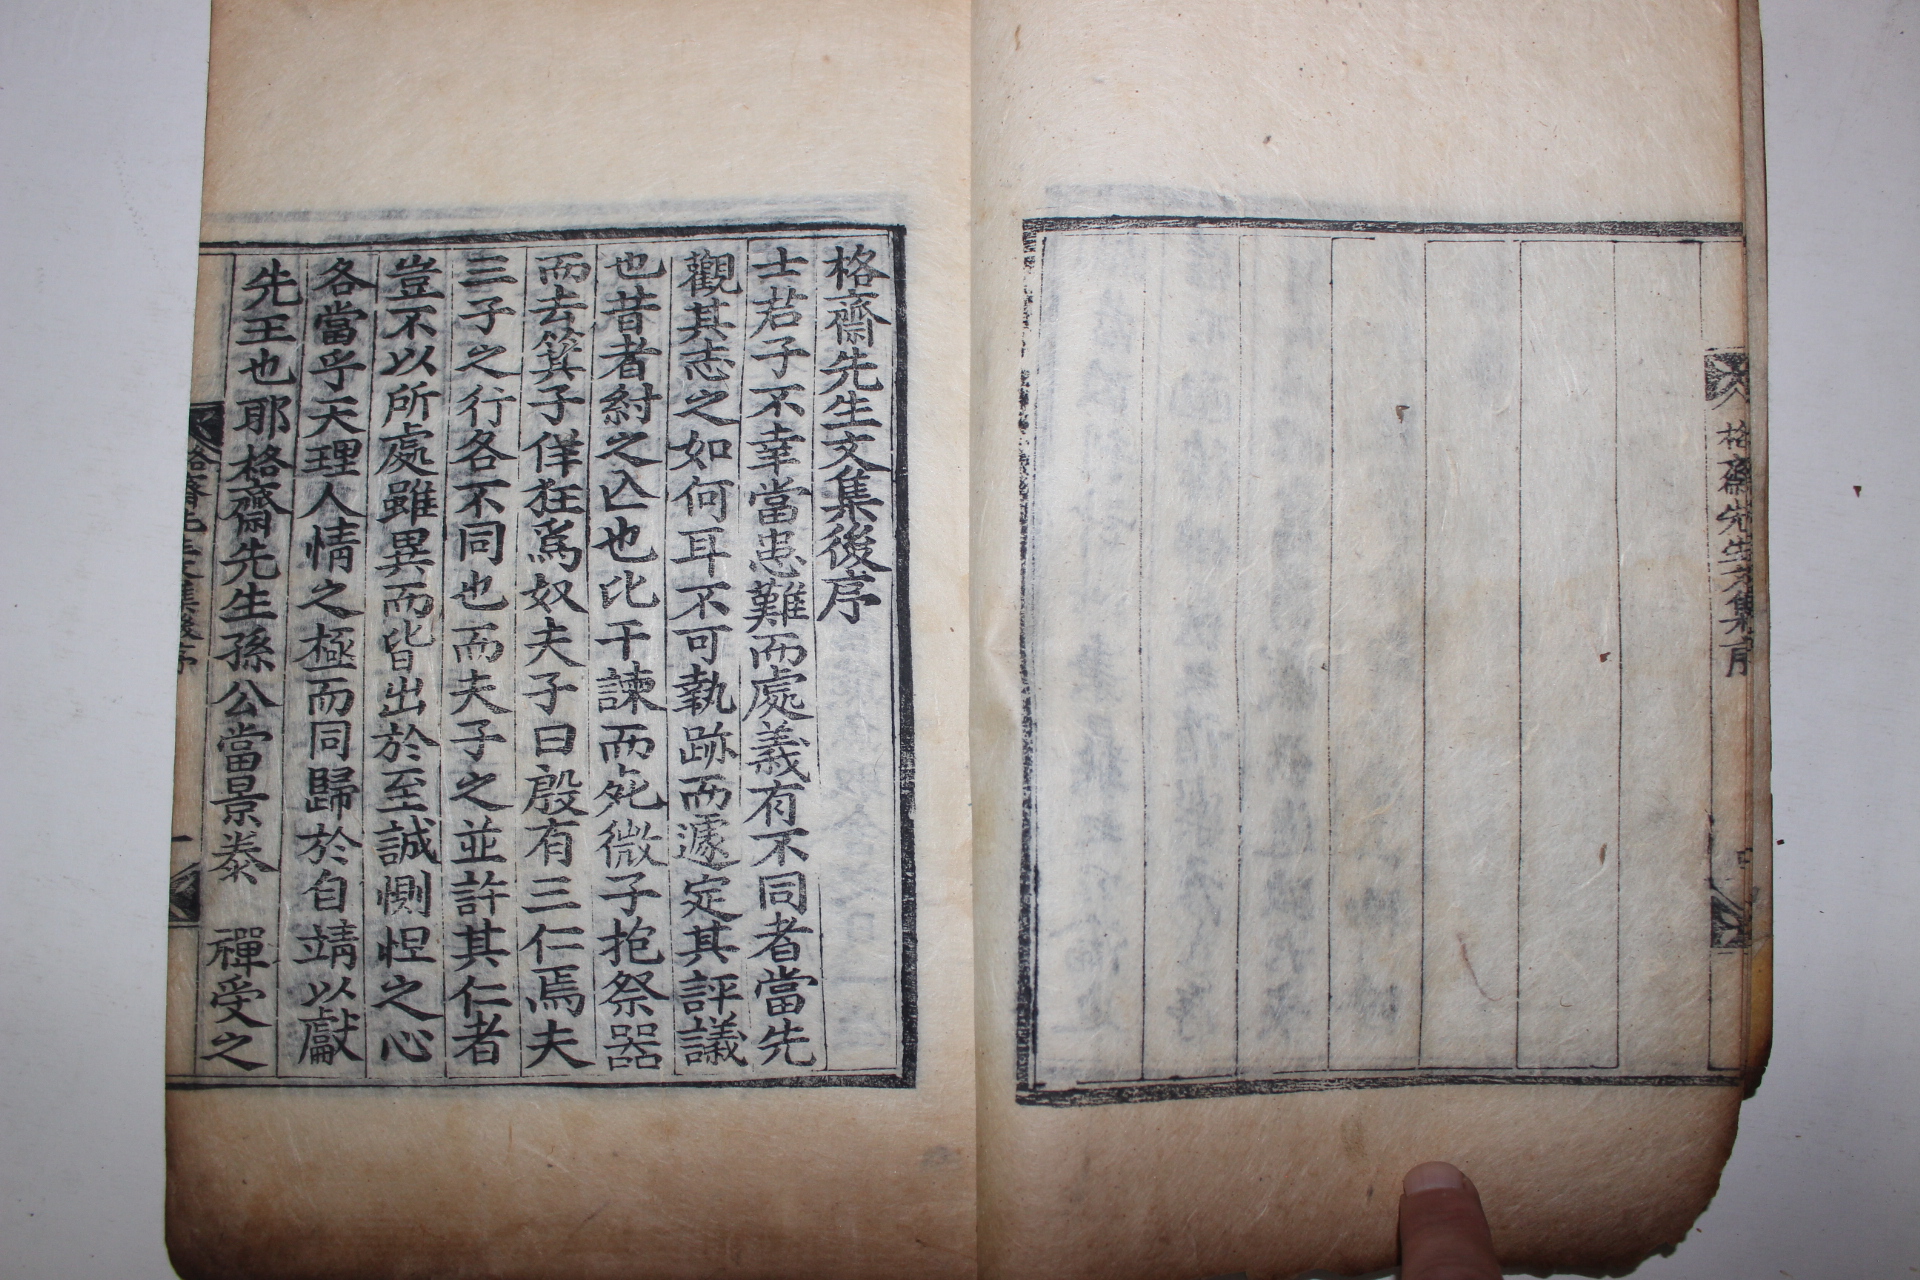 格齋先生文集序
格齋先生文集後序
士君子不幸當患難而處義有不同者當先
觀其志之如何耳不可執跡而遽定其評議
也昔者紂之亾也比干諫而死微子抱祭器
而去箕子佯狂爲奴夫子曰殷有三仁焉夫
三子之行各不同也而夫子之並許其仁者
豈不以所處雖異而皆出於至誠惻怛之心
各當乎天理人情之極而同歸於自靖以獻
先王也耶格齋先生孫公當景泰 禪受之
格齋先生文集後序 一